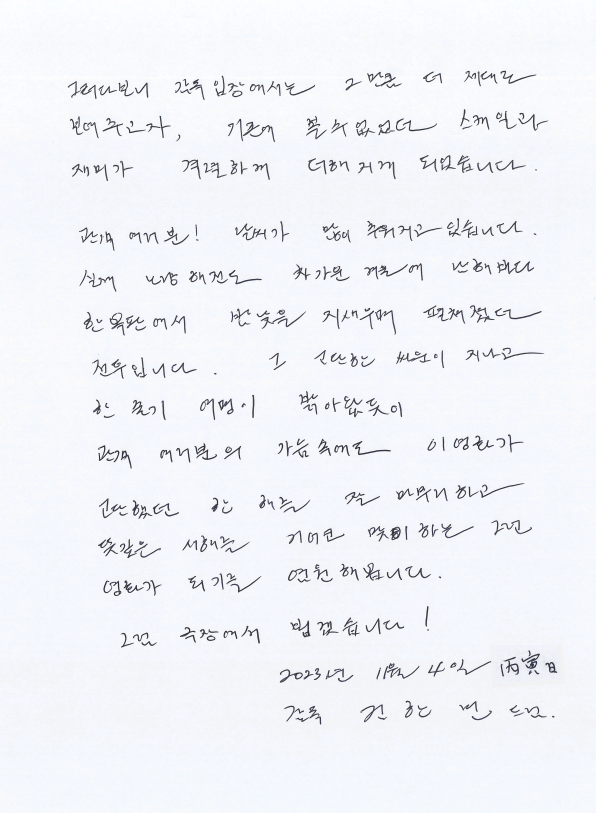 그러다보니 감독 입장에서는 그만큼 더 제대로
보여주고자, 기존에 볼 수 없었던 스케일과
재미가 격렬하게 더해지게 되었습니다.
관객 여러분! 날씨가 많이 추워지고 있습니다.
실제 노량해전도 차가운 겨울에 남해바다
한복판에서 밤낮을 지새우며 펼쳐졌던
전투입니다. 그 고단한 싸움이 지나고
한 줄기 여명이 밝아왔듯이
관객 여러분의 가슴속에도 이 영화가
고단했던 한 해를 잘 마무리하고
뜻깊은 새해를 기어코 맞이하는 그런
영화가 되기를 염원해봅니다.
그럼 극장에서 뵙겠습니다!
2023년 11월 4일 丙寅日
감독 김한민 드림.